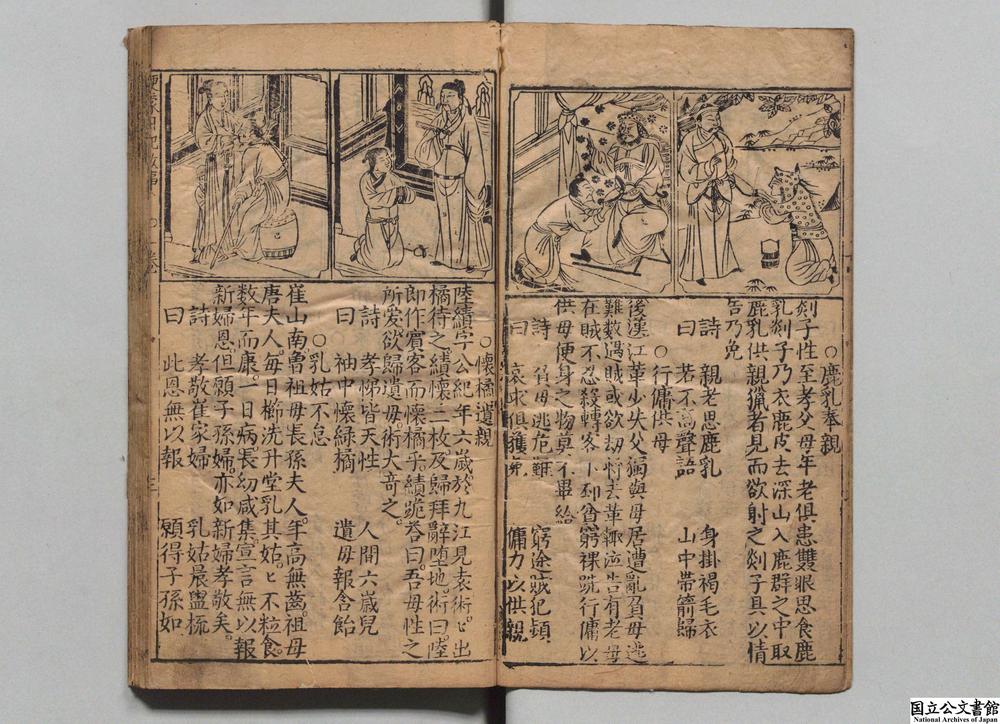 ○鹿乳奉親
剡子性至孝父母年老俱患雙眼思食鹿
乳剡子乃衣鹿皮去深山入鹿群之中取
鹿乳供親獵者見而欲射之剡子具以情
告乃免
詩　親老思鹿乳　身掛褐毛衣
曰　若不高聲語　山中帶箭歸
○行傭供母
後漢江革少失父獨與母居遭亂負母逃
難數遇賊或欲劫將去革輒泣告有老母
在賊不忍殺轉客下邳貧窮裸跣行傭以
供母便身之物莫不畢給
詩　負母逃危難　窮途賊犯頻
曰　哀求俱獲免　傭力以供親
○懷橘遺親
陸績字公紀年六歲於九江見袁術〻出
橘待之績懷二枚及歸拜辭墮地術曰陸
郎作賓客而懷橘乎績跪答曰吾母性之
所爱欲歸遺母術大奇之
詩　孝悌皆天性　人間六歲兒
曰　袖中懷綠橘　遺母報含飴
○乳姑不怠
崔山南曾祖母長孫夫人年高無齒祖母
唐夫人每日櫛洗升堂乳其姑〻不粒食
数年而康一日病長幼咸集宣言無以報
新婦恩但願子孫婦亦如新婦孝敬矣
詩　孝敬崔家婦　乳姑晨盥梳
曰　此恩無以報　願得子孫如
国立公文書館
National Archives of Japan